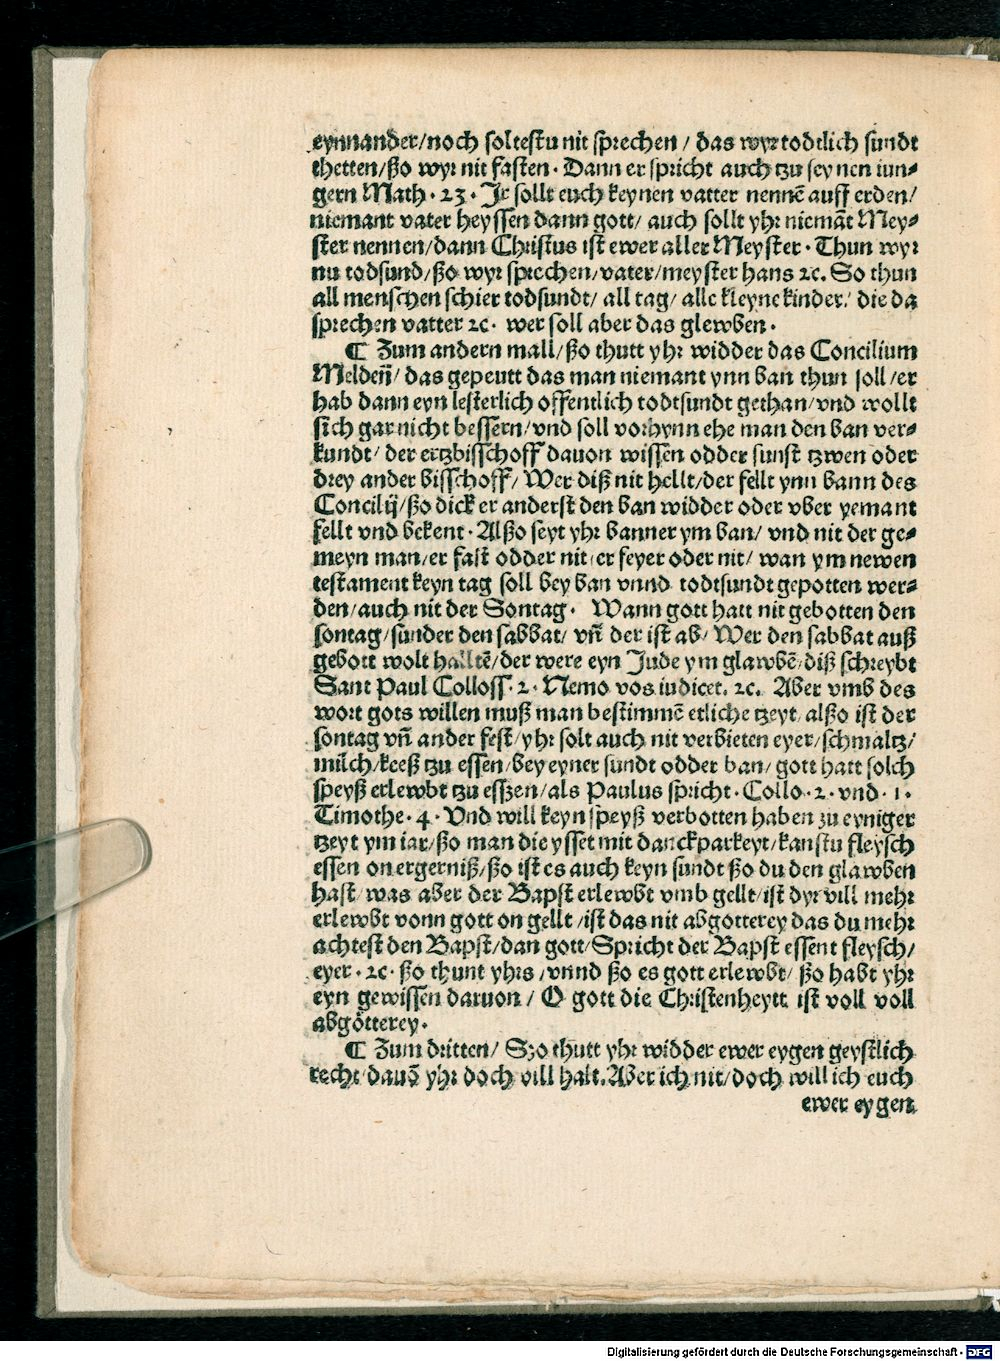 eynnander/noch soltestu nit sprechen / das wyr todtlich sundt
thetten/ßo wyr nit fasten · Dann er spricht auch tzu seynen iun⸗
gern Math · 23 · Ir sollt euch keynen vatter nennē auff erden/
niemant vater heyssen dann gott/ auch sollt yhr niemāt Mey⸗
ster nennen/dann Christus ist ewer aller Meyster · Thun wyr
nu todsund/ßo wyr sprechen/vater/meyster hans ꝛc. So thun
all menschen schier todsundt/ all tag/ alle kleyne kinder/ die da
sprechen vatter ꝛc · wer soll aber das glewben ·
¶ Zum andern mall/ßo thutt yhr widder das Concilium
Meldeñ/ das gepeutt das man niemant ynn ban thun soll /er
hab dann eyn lesterlich offentlich todtsundt gethan/vnd wollt
sich gar nicht bessern/vnd soll vorhynn ehe man den ban ver⸗
kundt/ der ertzbisschoff dauon wissen odder sunst tzwen oder
drey ander bisschoff/ Wer diß nit hellt/der fellt ynn bann des
Concilij/ßo dick er anderst den ban widder oder vber yemant
fellt vnd bekent · Alßo seyt yhr banner ym ban/ vnd nit der ge⸗
meyn man/er fast odder nit/er feyer oder nit/ wan ym newen
testament keyn tag soll bey ban vnnd todtsundt gepotten wer⸗
den/auch nit der Sontag · Wann gott hatt nit gebotten den
sontag/sunder den sabbat/ vñ der ist ab/ Wer den sabbat auß
gebott wolt halltē/der were eyn Jude ym glawbē/diß schreybt
Sant Paul Colloss · 2 · Nemo vos iudicet. ꝛc. Aber vmb des
wort gots willen muß man bestimmē etliche tzeyt/ alßo ist der
sontag vñ ander fest/yhr solt auch nit verbieten eyer/schmaltz/
milch/keeß tzu essen/bey eyner sundt odder ban/ gott hatt solch
speyß erlewbt tzu eszen/als Paulus spricht · Collo · 2 · vnd · 1 ·
Timothe · 4 · Vnd will keyn speyß verbotten haben zu eyniger
tzeyt ym iar/ßo man die ysset mit danckparkeyt/kanstu fleysch
essen on ergerniß/ßo ist es auch keyn sundt ßo du den glawben
hast/was aber der Bapst erlewbt vmb gellt/ist dyr vill mehr
erlewbt vonn gott on gellt /ist das nit abgotterey das du mehr
achtest den Bapst/dan gott/Spricht der Bapst essent fleysch/
eyer · ꝛc · ßo thunt yhrs /vnnd ßo es gott erlewbt/ ßo habt yhr
eyn gewissen daruon / O gott die Christenheytt ist voll voll
abgötterey ·
¶ Zum dritten/ Szo thutt yhr widder ewer eygen geystlich
recht/dauō yhr doch vill halt. Aber ich nit/doch will ich euch
ewer eygen
Digitalisierung gefördert durch die Deutsche Forschungsgemeinschaft - DFG